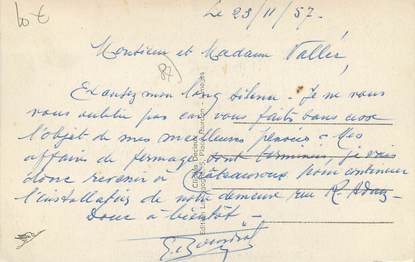 10 €
Le 23/11/57.
Monsieur et Madame Vallès,
87)
Excusez mon long silence. Je ne vous
vous oublie pas car vous faites sans cesse
l'objet de mes meilleures pensées. Mes
affaires de fermage sont terminées, je vais
donc revenir à Châteauroux pour continuer
l'installation de notre demeure rue R. Adam
Donc à bientôt.